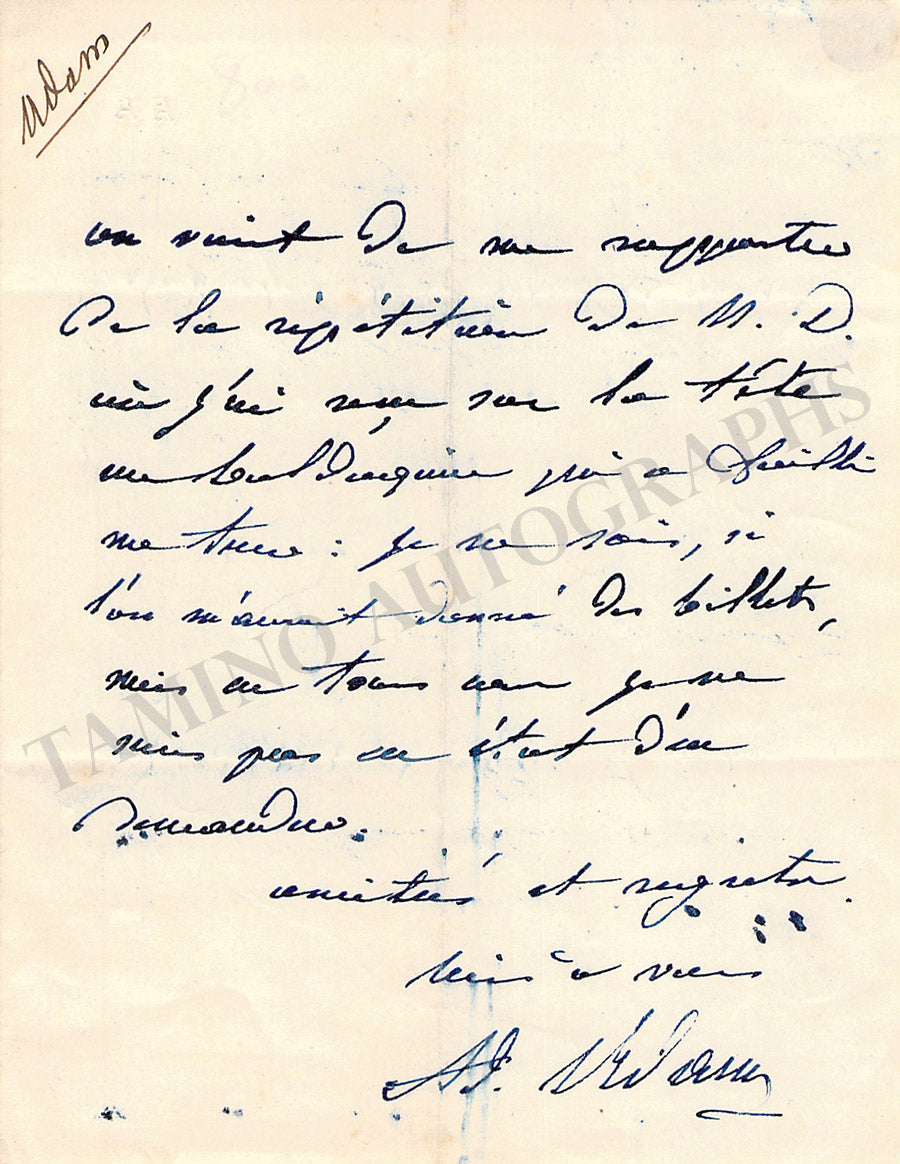 Adam
800
on vient de me rapporter
de la répétition de N. D.
où j'ai reçu sur la tête
un baldaquin qui a failli
me tuer : je ne sais, si
l'on m'aurait donné des billets,
mais en tous cas je ne
suis pas en état d'en
demander.
amitiés et regrets.
tout à vous
Ad. Adam
TAMINO AUTOGRAPHS